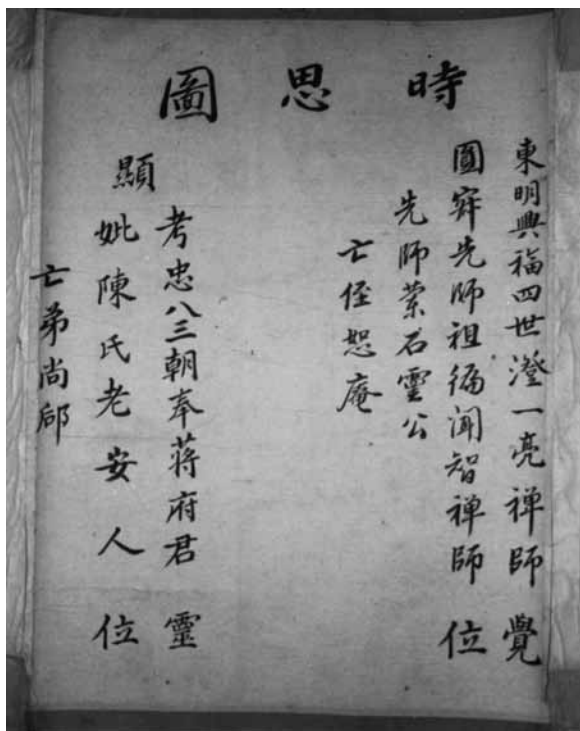 時思圖
東明興福四世澄一亮禪師 覺
圓寂先師祖徧聞智禪師 位
先師石靈公
亡侄恕庵
顯
考忠八三朝奉蔣府君 靈
妣陳氏老安人 位
亡弟尚